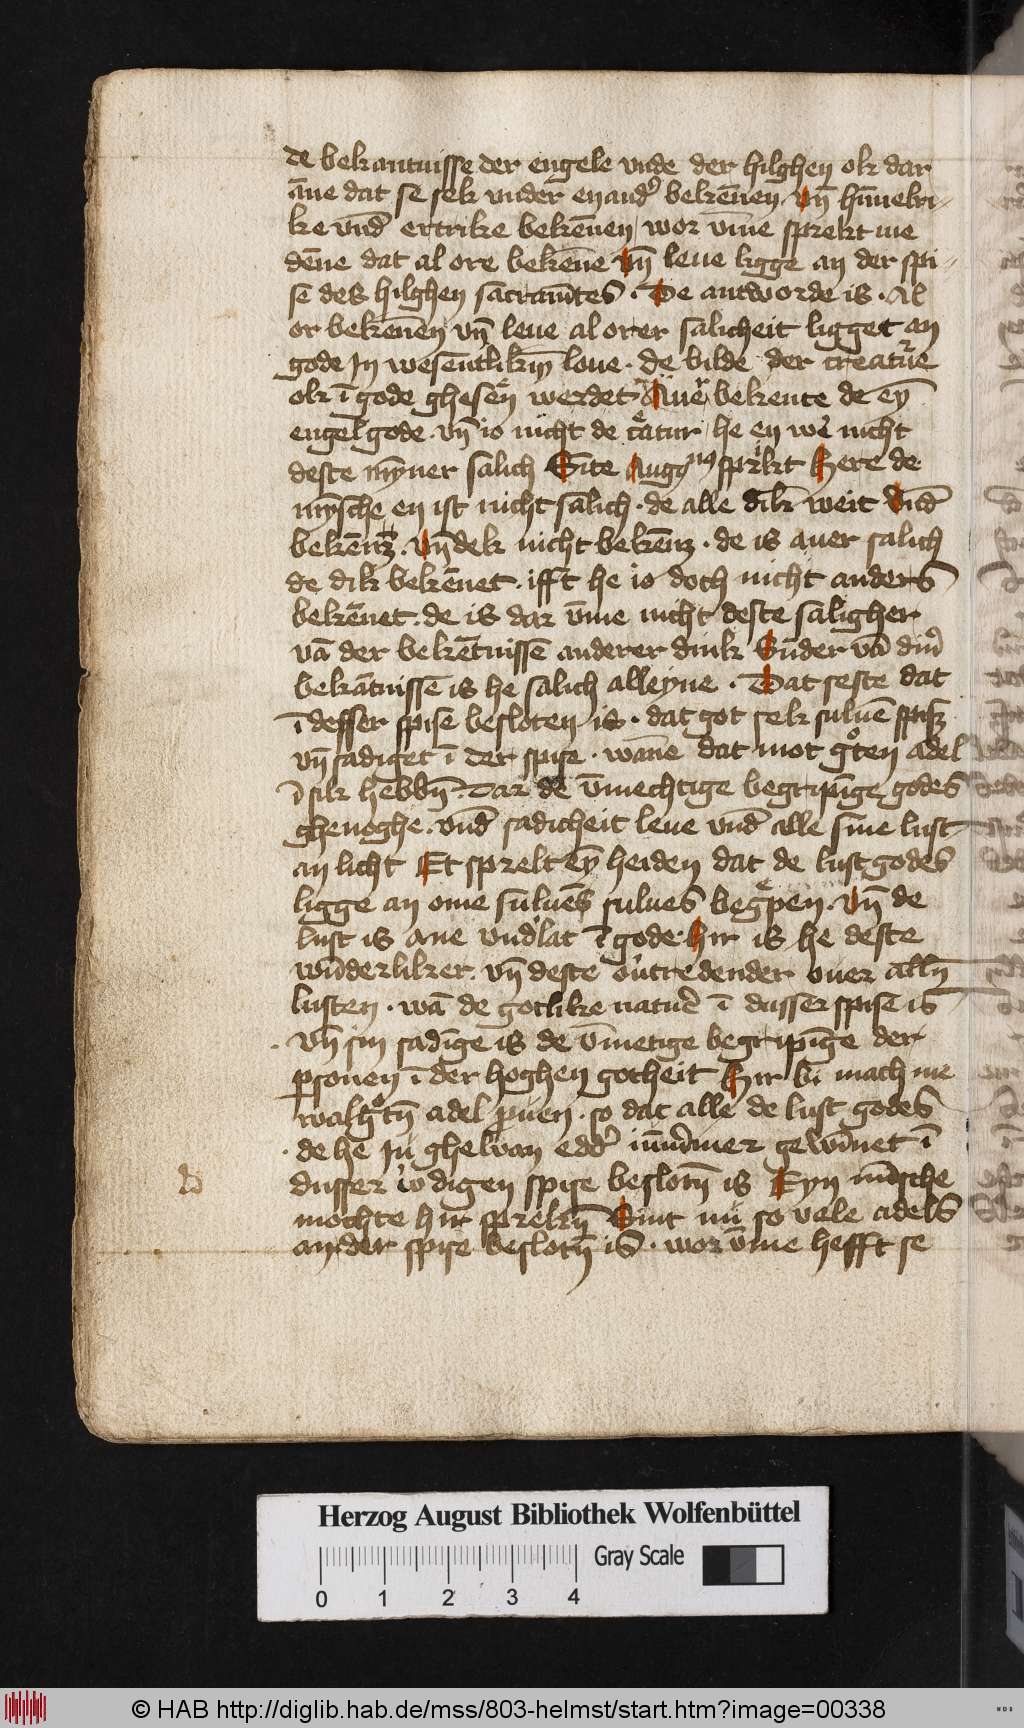 de bekantnisse der engele vnde der hilghen ok dar
āne dat se sek vnder enand' bekēnen vn̄ hīmelri-
ke vnd̄ ertrike bekēnen wor vm̄e sprekt me
dēne dat al ore bekēne vn̄ leue ligge an der spi-
se des hilghen sacramt̄es . De antworde is . Al
or bekēnen vn̄ leue al orer salicheit ligget an
gode In wesentlikem̄ loue . de bilde der creatur̄e
ok ī gode ghesen̄ werdet Auer bekente de eȳ
engel gode . vn̄ io nicht de creatur he en wer nicht
deste mȳner salich Sūte Aug9 sprikt Here de
mȳsche en ist nicht salich . de alle dīk weit vnd̄
bekēnꝫ . vn̄ dek nicht bekēnꝫ . de is auer salich
de dik bekēnet . ifft he io doch nicht anders
bekēnet . de is dar vm̄e nicht deste saligher
vā der bekētnissē anderer dink Sūder vā dīner
bekātnissē is he salich alleyne . Dat seste dat
ī desser spise besloten is . dat got sek suluē spisꝫ
vn̄ sadiget ī der spise . wāne dat mot groten adel
ī sik hebbn̄ . Dar de vm̄echtige begripīge godes
ghenoghe . vnd̄ sadicheit leue vnd̄ alle sine lust
an licht Et sprekt eȳ heiden dat de lust godes
ligge an ome suluēs sulues begrepen . vn̄ de
lust is ane vnd'lat ī gode . hir is he deste
wūderliker . vn̄ deste ou'tredender ouer alln̄
lusten . wā de gotlike natur̄ ī dusser spise is
. vn̄ sin sadīge is de vm̄etige begripīge der
ꝑsonen ī der hoghen gotheit Hir bi mach me
wal grotn̄ adel prouen . so dat alle de lust godes
. de he Ju ghelwan edd' ūmermer gewīnet ī
dusser wdigen spise beslotn̄ is Eyn mīsche
mochte hir sprekn̄ Sint nu so vele adels
an der spise beslotn̄ is . wor vm̄e hefft se
Herzog August Bibliothek Wolfenbüttel
Gray Scale
0 1 2 3 4
© HAB http://diglib.hab.de/mss/803-helmst/start.htm?image=00338